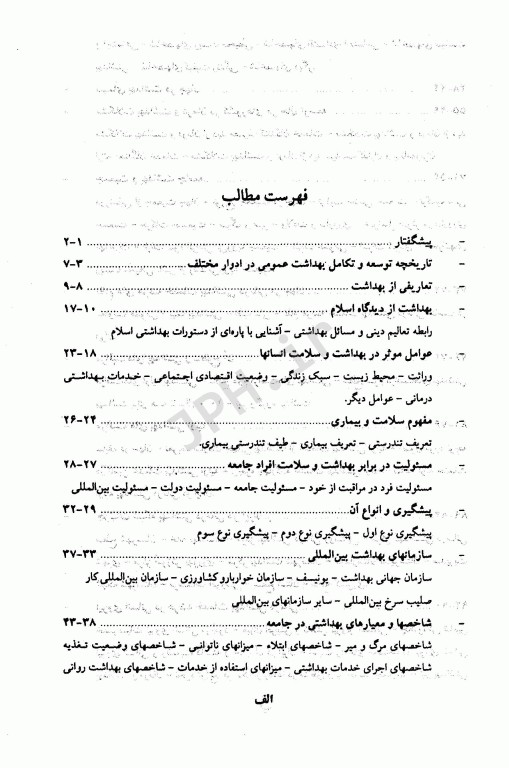 فهرست مطالب
- پیشگفتار ........ ۱-۲
- تاریخچه توسعه و تکامل بهداشت عمومی در ادوار مختلف ........ ۳-۷
- تعاریفی از بهداشت ........ ۸-۹
- بهداشت از دیدگاه اسلام ........ ۱۰-۱۷
رابطه تعالیم دینی و مسائل بهداشتی - آشنایی با پاره‌ای از دستورات بهداشتی اسلام
- عوامل موثر در بهداشت و سلامت انسانها ........ ۱۸-۲۳
وراثت - محیط زیست - سبک زندگی - وضعیت اقتصادی اجتماعی - خدمات بهداشتی
درمانی - عوامل دیگر.
- مفهوم سلامت و بیماری ........ ۲۴-۲۶
تعریف تندرستی - تعریف بیماری - طیف تندرستی بیماری.
- مسئولیت در برابر بهداشت و سلامت افراد جامعه ........ ۲۷-۲۸
مسئولیت فرد در مراقبت از خود - مسئولیت جامعه - مسئولیت دولت - مسئولیت بین‌المللی
- پیشگیری و انواع آن ........ ۲۹-۳۲
پیشگیری نوع اول - پیشگیری نوع دوم - پیشگیری نوع سوم
- سازمانهای بهداشت بین‌المللی ........ ۳۳-۳۷
سازمان جهانی بهداشت - یونیسف - سازمان خواربارو کشاورزی - سازمان بین‌المللی کار
صلیب سرخ بین‌المللی - سایر سازمانهای بین‌المللی
- شاخصها و معیارهای بهداشتی در جامعه ........ ۳۸-۴۳
شاخصهای مرگ و میر - شاخصهای ابتلاء - میزانهای ناتوانی - شاخصهای وضعیت تغذیه
شاخصهای اجرای خدمات بهداشتی - میزانهای استفاده از خدمات - شاخصهای بهداشت روانی
الف
JPH.ir